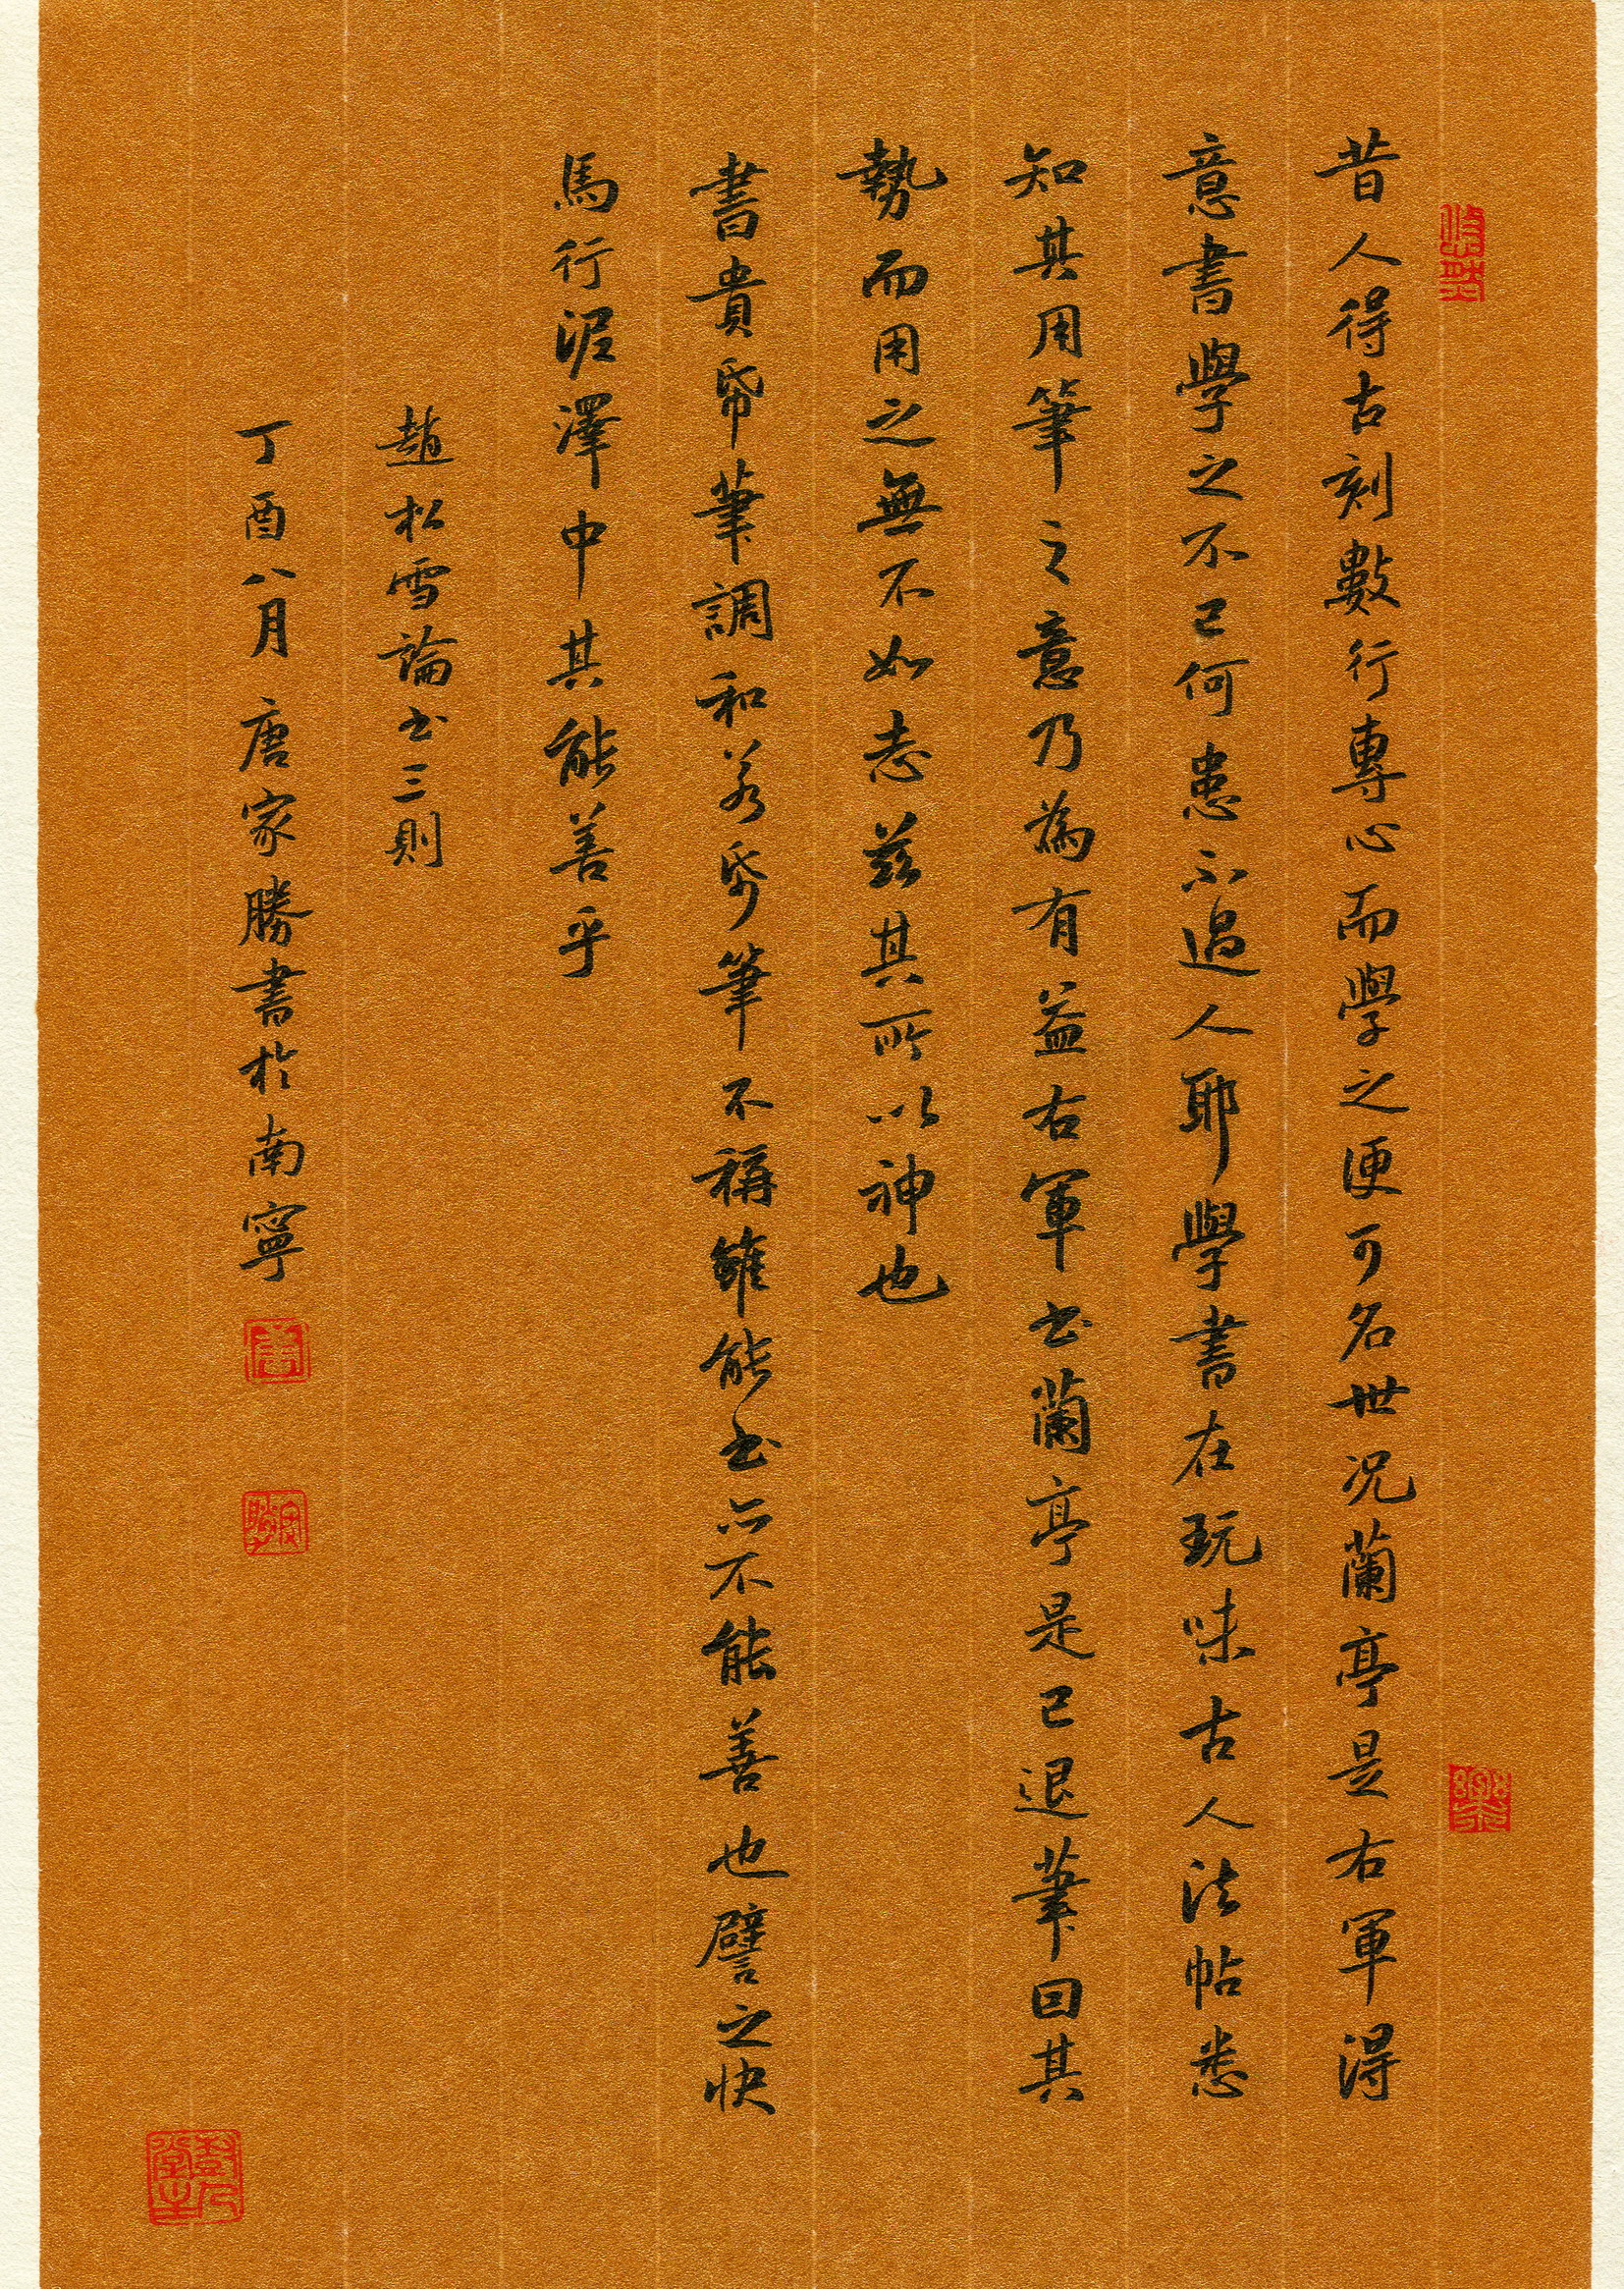 昔人得古刻數行專心而學之便可名世況蘭亭是右軍得
意書學之不已何患不過人耶學書在玩味古人法帖悉
知其用筆之意乃為有益右軍書蘭亭是已退筆因其
勢而用之無不如志茲其所以神也
書貴帋筆調和若帋筆不稱雖能書亦不能善也譬之快
馬行泥澤中其能善乎
趙松雪論書三則
丁酉八月唐家勝書於南寧